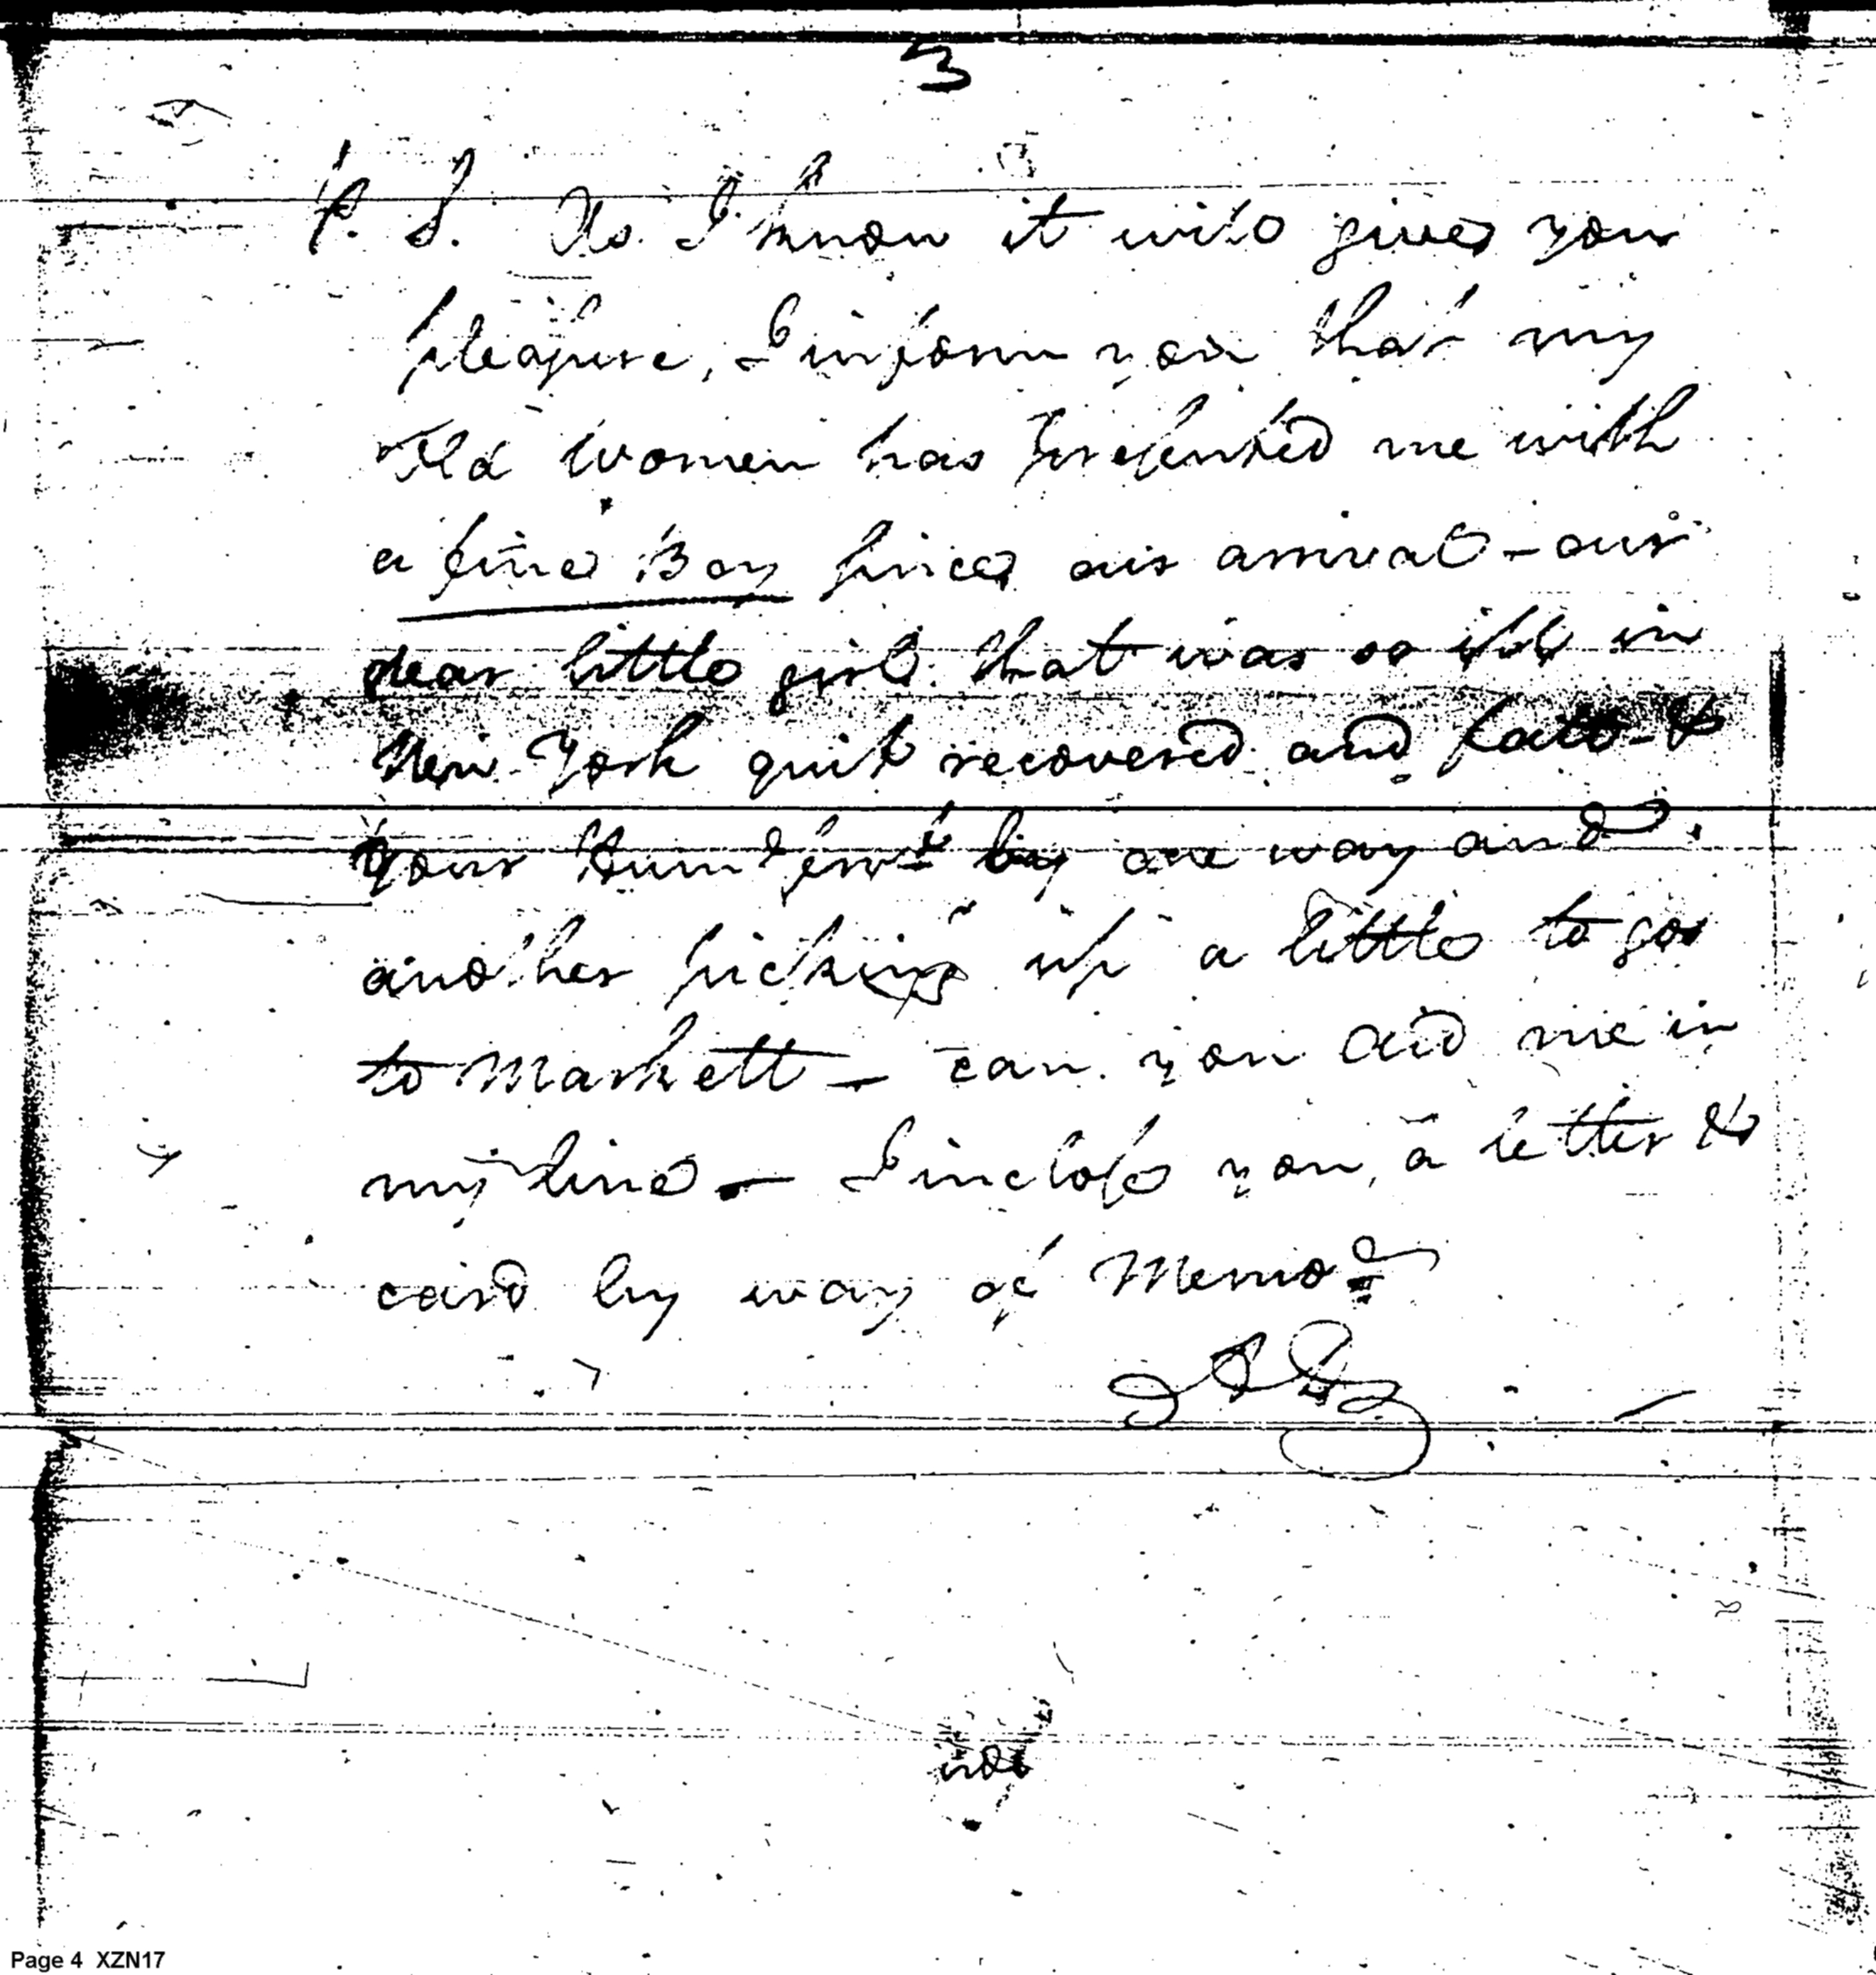 3
P. S. As I know it will give you
pleasure, I inform you that my
Old Women has presented me with
a fine Boy since our arrival - our
dear little girl that was so ill in
New York quit recovered and fatt - &
your Hum Servt by one way and
another picking up a little to go
to Markett - can you aid me in
my line - I inclose you a letter &
card by way of Memo
Page 4 XZN17